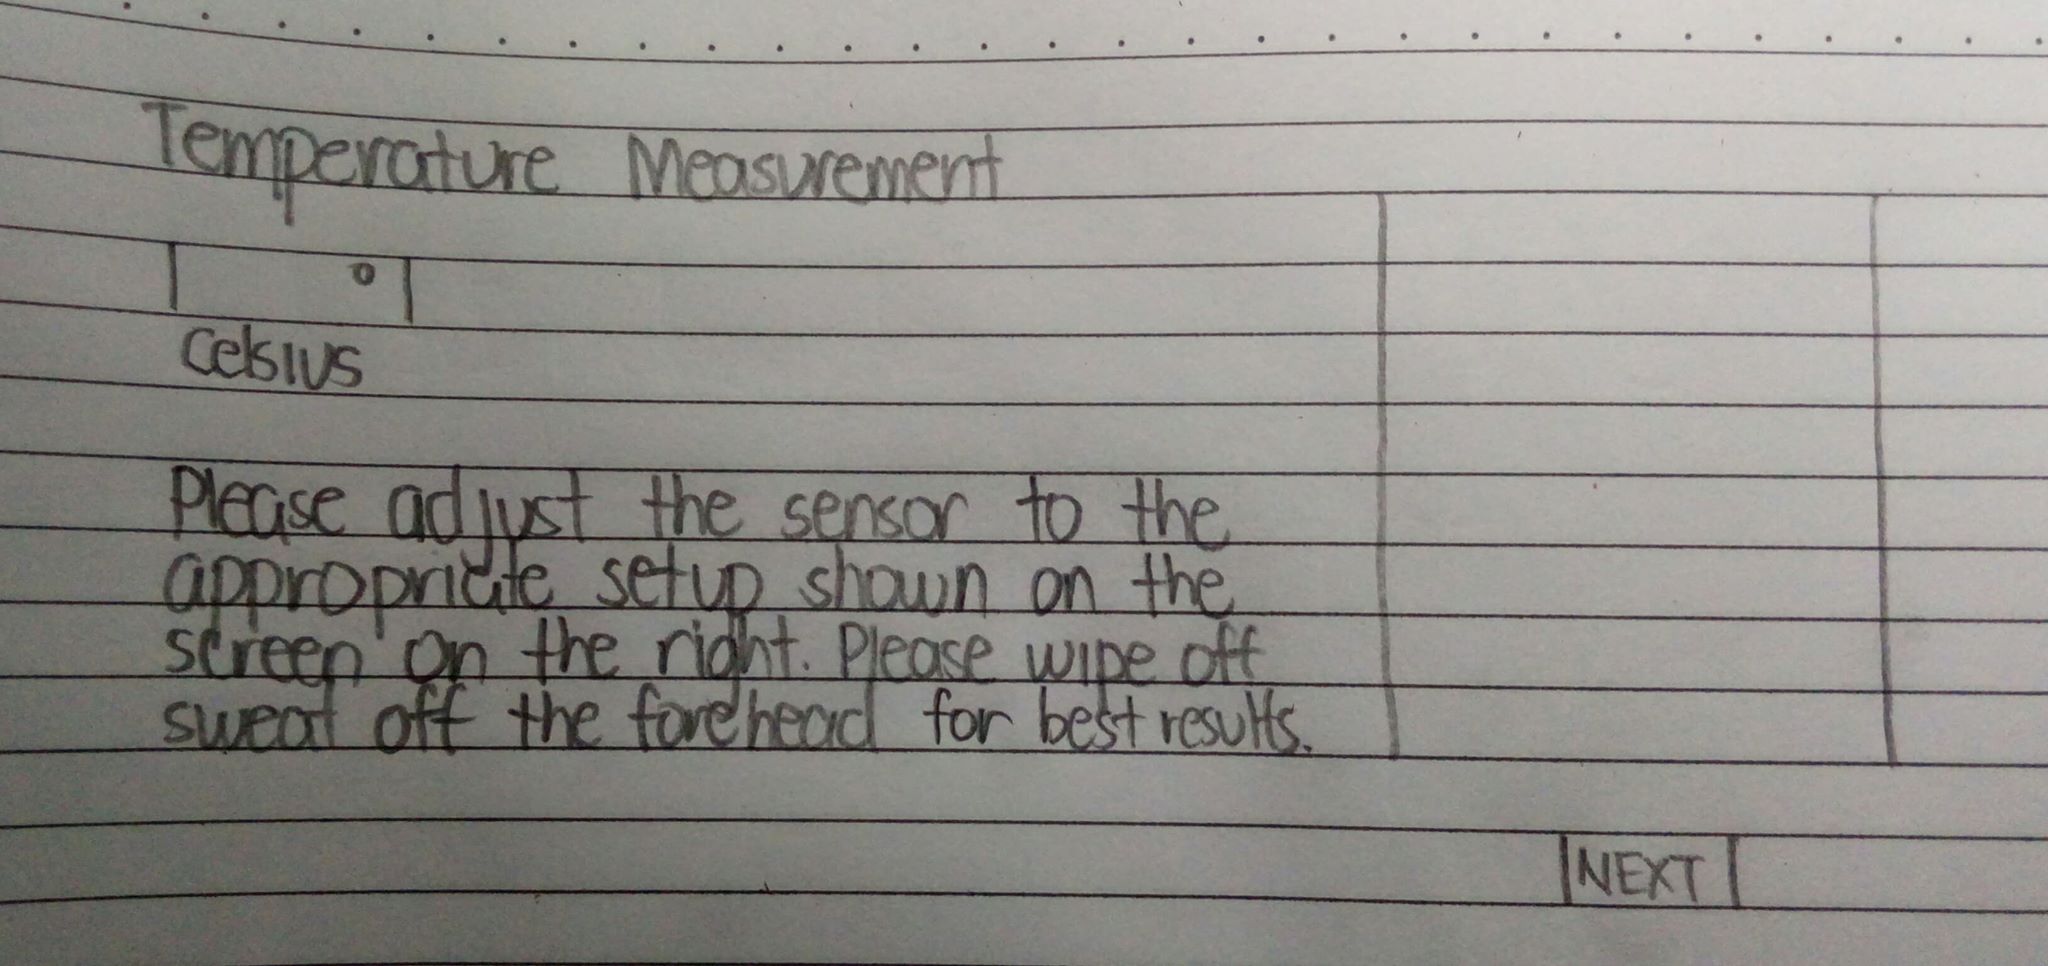 Temperature Measurement
°
Celsius
Please adjust the sensor to the
appropriate setup shown on the
screen on the right. Please wipe off
sweat off the forehead for best results.
NEXT